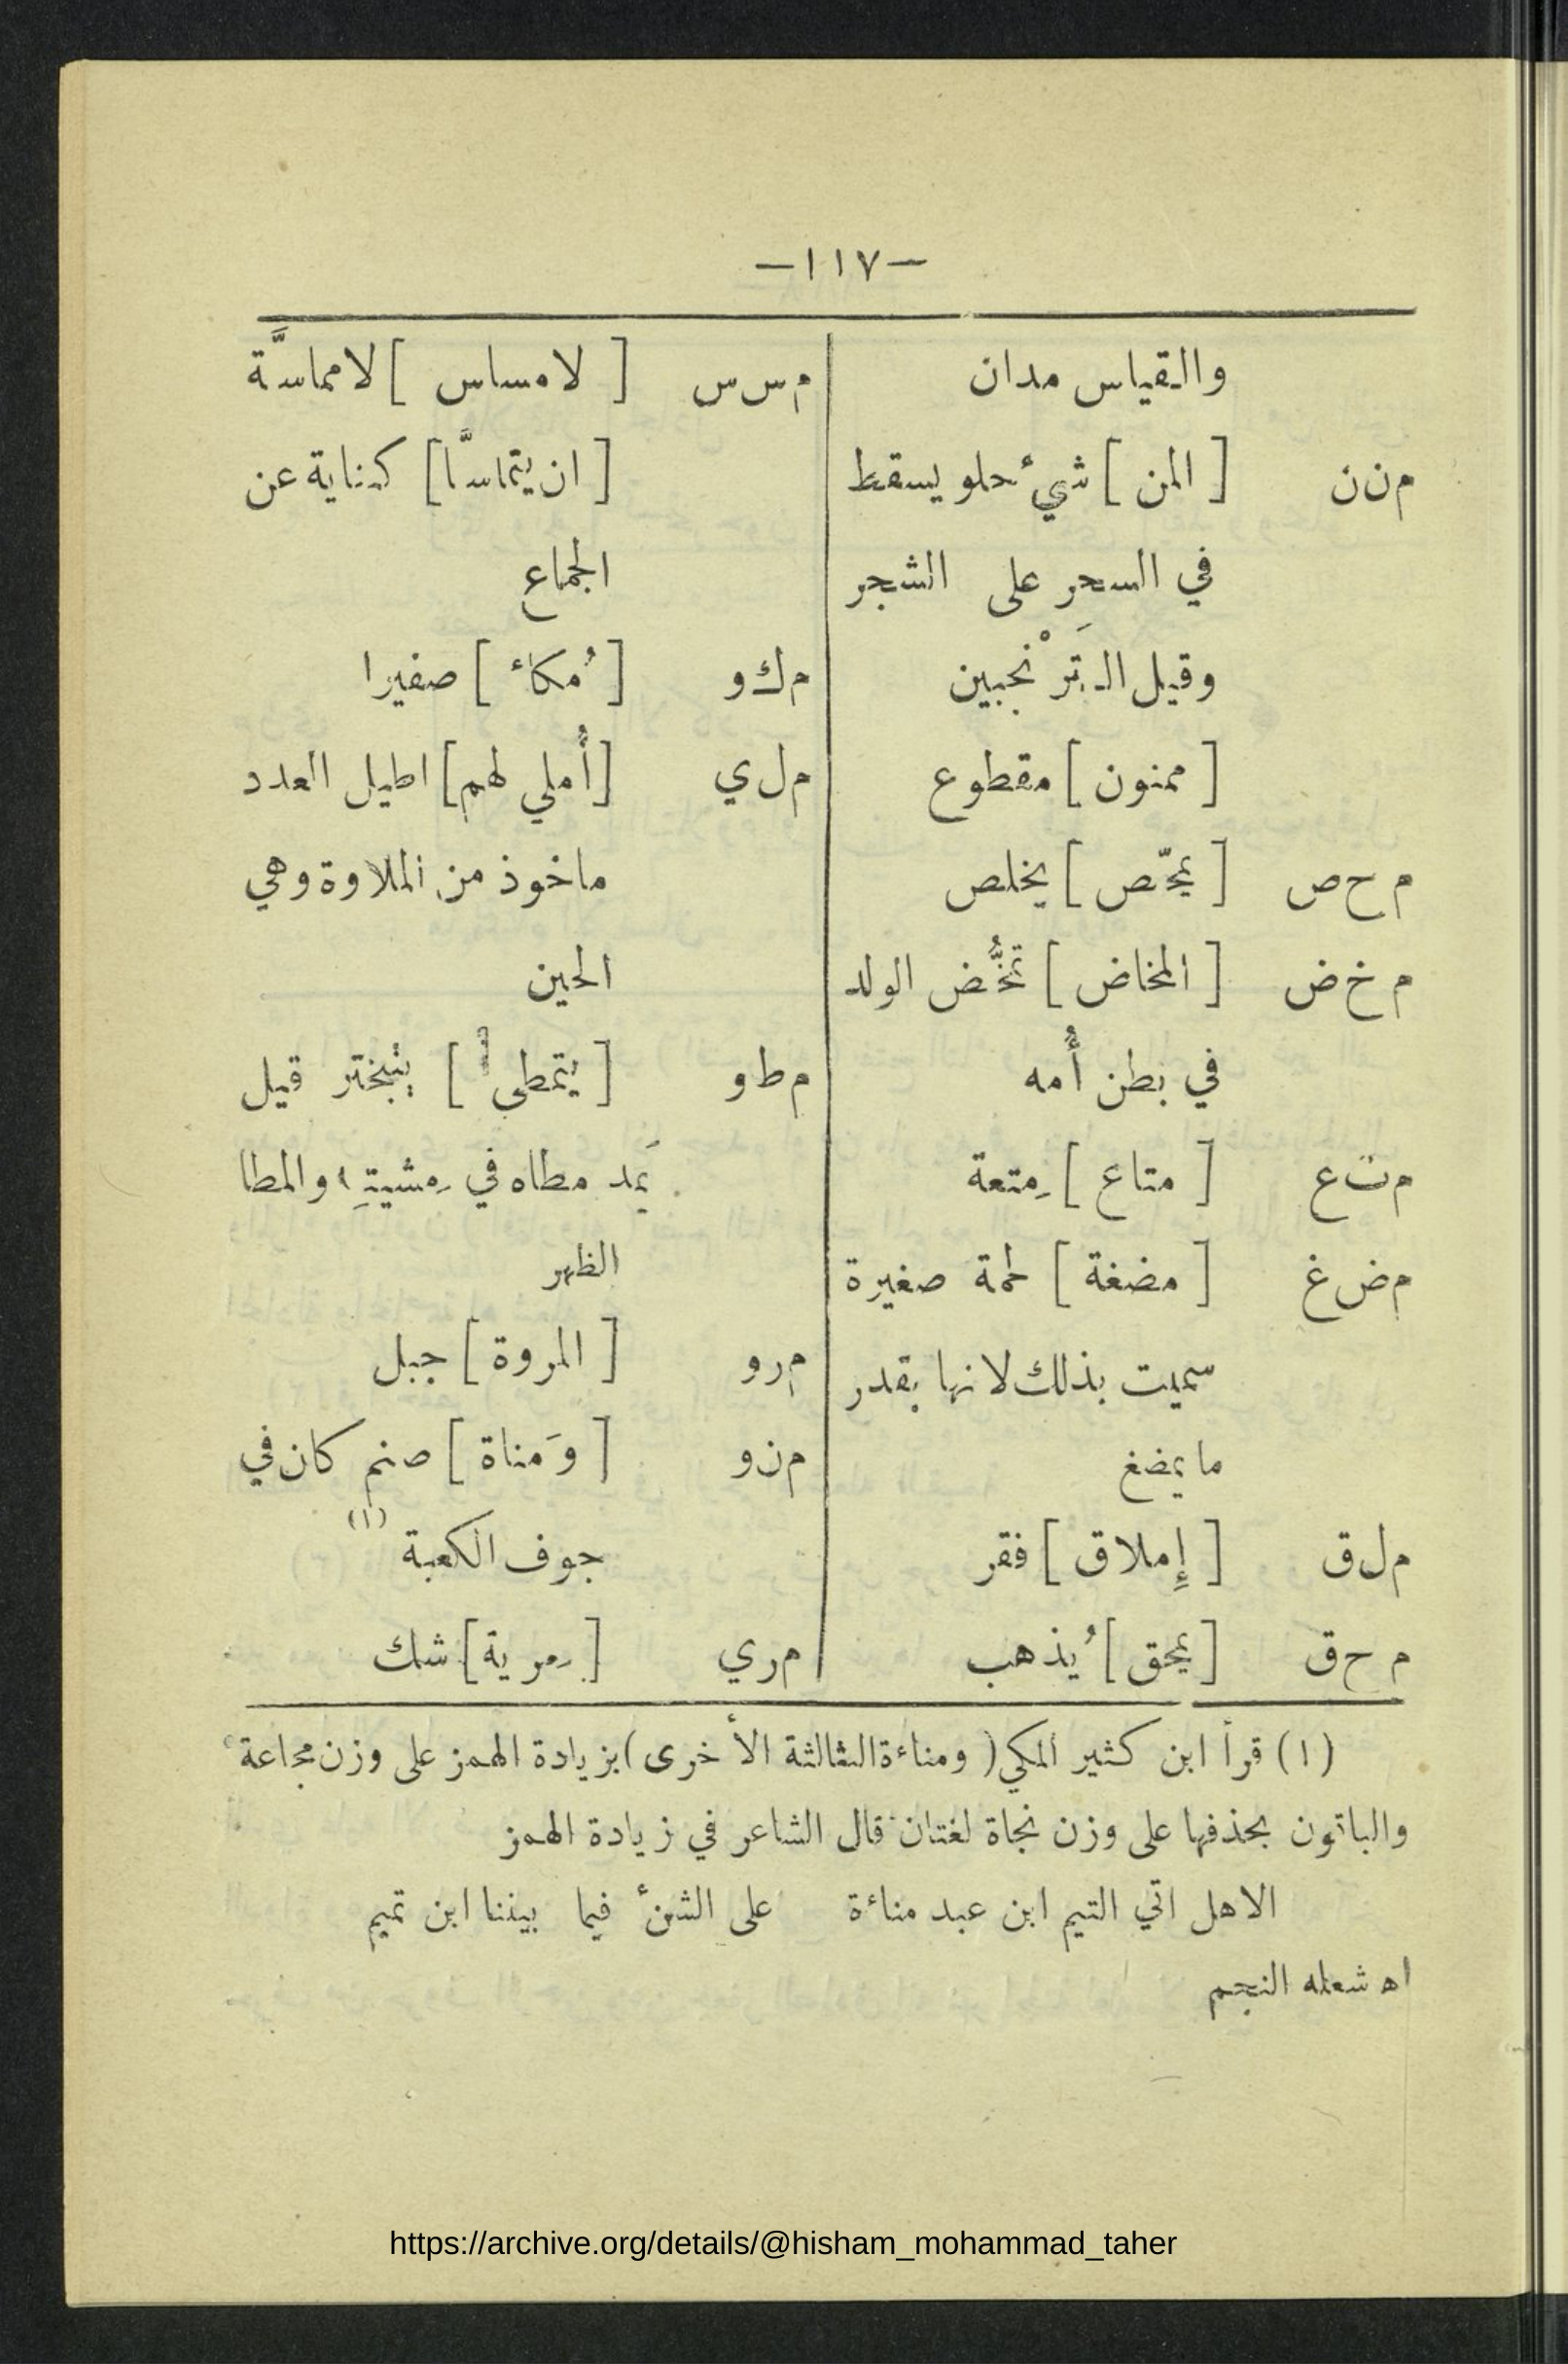 —١١٧—
والقياس مدان
م ن ن [ المن ] شيءٌ حلو يسقط
في السحر على الشجر
وقيل الترَنْجبين
[ ممنون ] مقطوع
م ح ص [ يمحّص ] يخلص
م خ ض [ المخاض ] تمخُّض الولد
في بطن أُمه
م ت ع [ متاع ] مِتعة
م ض غ [ مضغة ] لحمة صغيرة
سميت بذلك لانها بقدر
ما يمضغ
م ل ق [ إِملاق ] فقر
م ح ق [ يمحق ] يُذهب
م س س [ لا مساس ] لا مماسَّة
[ ان يتماسَّا ] كناية عن
الجماع
م ك و [ مُكاء ] صفيرا
م ل ي [ أُملي لهم ] اطيل العدد
ماخوذ من الملاوة وهي
الحين
م ط و [ يتمطى ] يتبختر قيل
يَمد مطاه في مِشيتِه والمطا
الظهر
م ر و [ المروة ] جبل
م ن و [ وَمناة ] صنم كان في
جوف الكعبة (١)
م ر ي [ مِرية ] شك
(١) قرأ ابن كثير المكي ( ومناءة الثالثة الأخرى ) بزيادة الهمز على وزن مجاعة
والباقون بحذفها على وزن نجاة لغتان قال الشاعر في زيادة الهمز
الاهل اتي التيم ابن عبد مناءة على الشنء فيما بيننا ابن تميم
اه شعله النجم
https://archive.org/details/@hisham_mohammad_taher